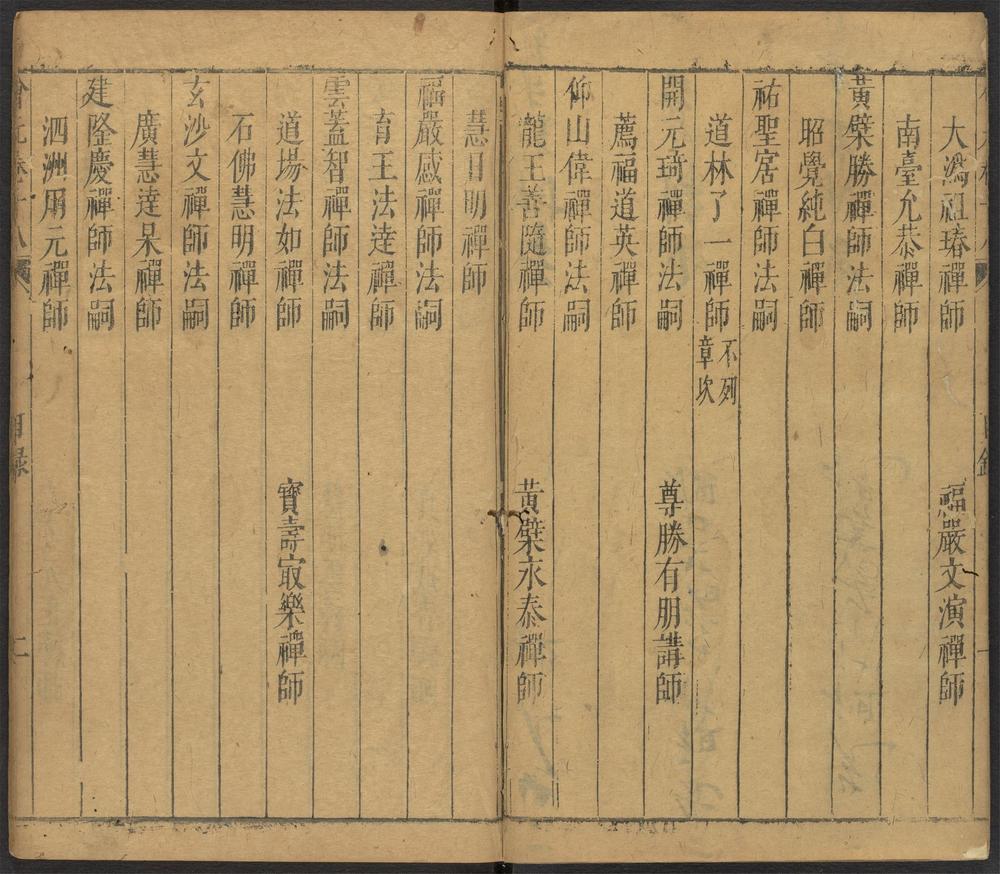 大溈祖瑃禪師　福嚴文演禪師
南臺允恭禪師
黃檗勝禪師法嗣
昭覺純白禪師
祐聖㝒禪師法嗣
道林了一禪師不列章次
開元琦禪師法嗣　尊勝有朋講師
薦福道英禪師
仰山偉禪師法嗣
龍王善隨禪師　黃檗永泰禪師
慧日明禪師
福嚴感禪師法嗣
育王法達禪師
雲蓋智禪師法嗣
道場法如禪師　寶壽㝡樂禪師
石佛慧明禪師
玄沙文禪師法嗣
廣慧達杲禪師
建隆慶禪師法嗣
泗洲用元禪師
會元卷十八　目録　二